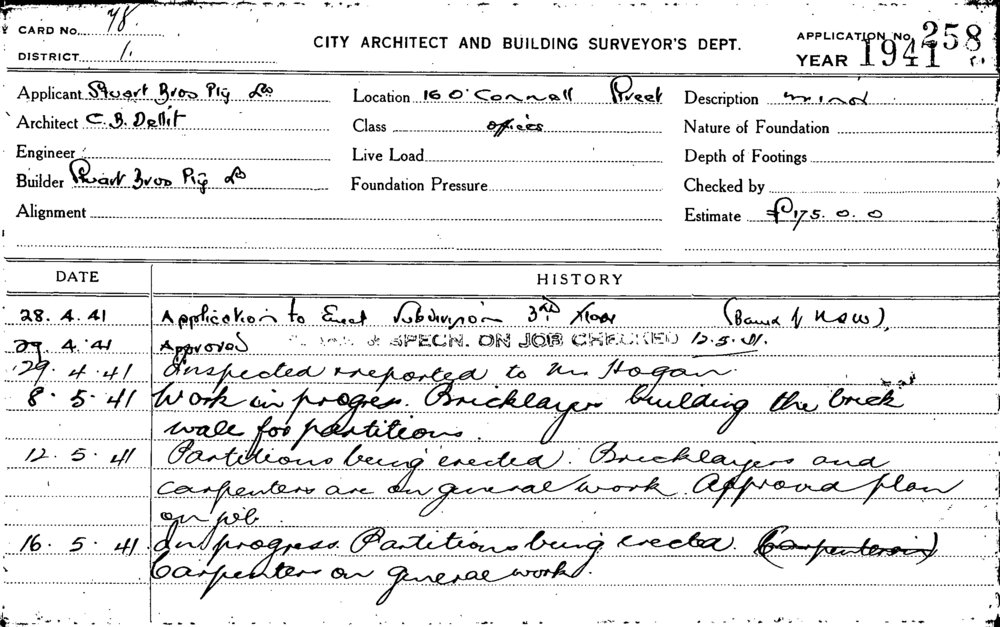 CARD No. 78
DISTRICT 1.
CITY ARCHITECT AND BUILDING SURVEYOR'S DEPT.
APPLICATION No. 258
YEAR 1941
Applicant Stuart Bros Pty Ld
Location 16 O'Connell Street
Description minor
Architect C. B. Dellit
Class offices
Nature of Foundation
Engineer
Live Load
Depth of Footings
Builder Stuart Bros Pty Ld
Foundation Pressure
Checked by
Alignment
Estimate £175. 0. 0
DATE HISTORY
28. 4. 41 Application to Erect Subdivision 3RD Floor (Bank of NSW),
29. 4. 41 Approved & SPECN. ON JOB CHECKED 12.5.41.
29. 4. 41 Inspected & reported to Mr Hogan.
8. 5. 41 Work in progress. Bricklayers building the brick
wall for partitions.
12. 5. 41 Partitions being erected. Bricklayers and
carpenters are on general work. Approved plan
on job.
16. 5. 41 In progress. Partitions being erected. (Carpenters in)
Carpenters on general work.